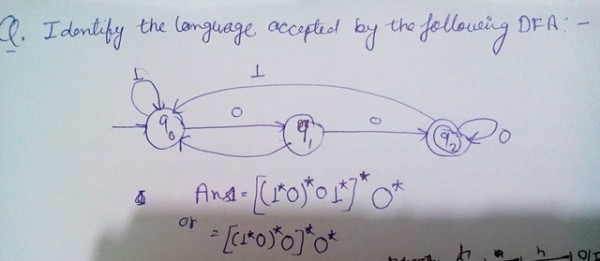 Q. Identify the language accepted by the following DFA: -
1
1
0
0
0
q0 q1 q2
Ans1 = [(1*0)*01*]* 0*
or
= [(1*0)*0]*0*